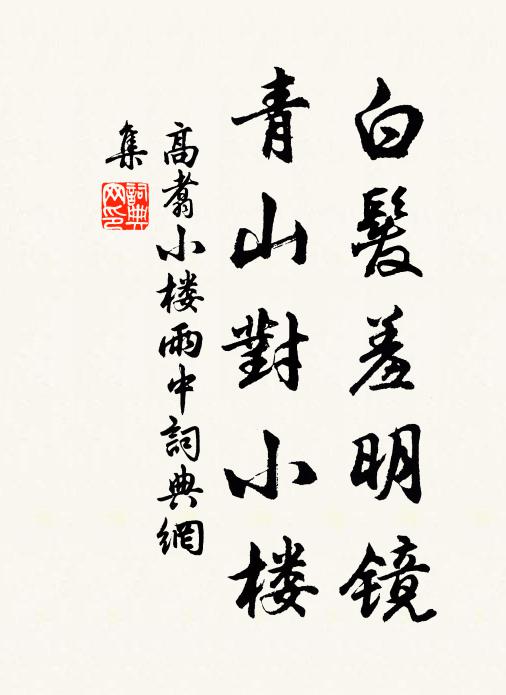 白髮羞明镜
青山對小楼
高翥小楼雨中詞典網
集
詞典
网印